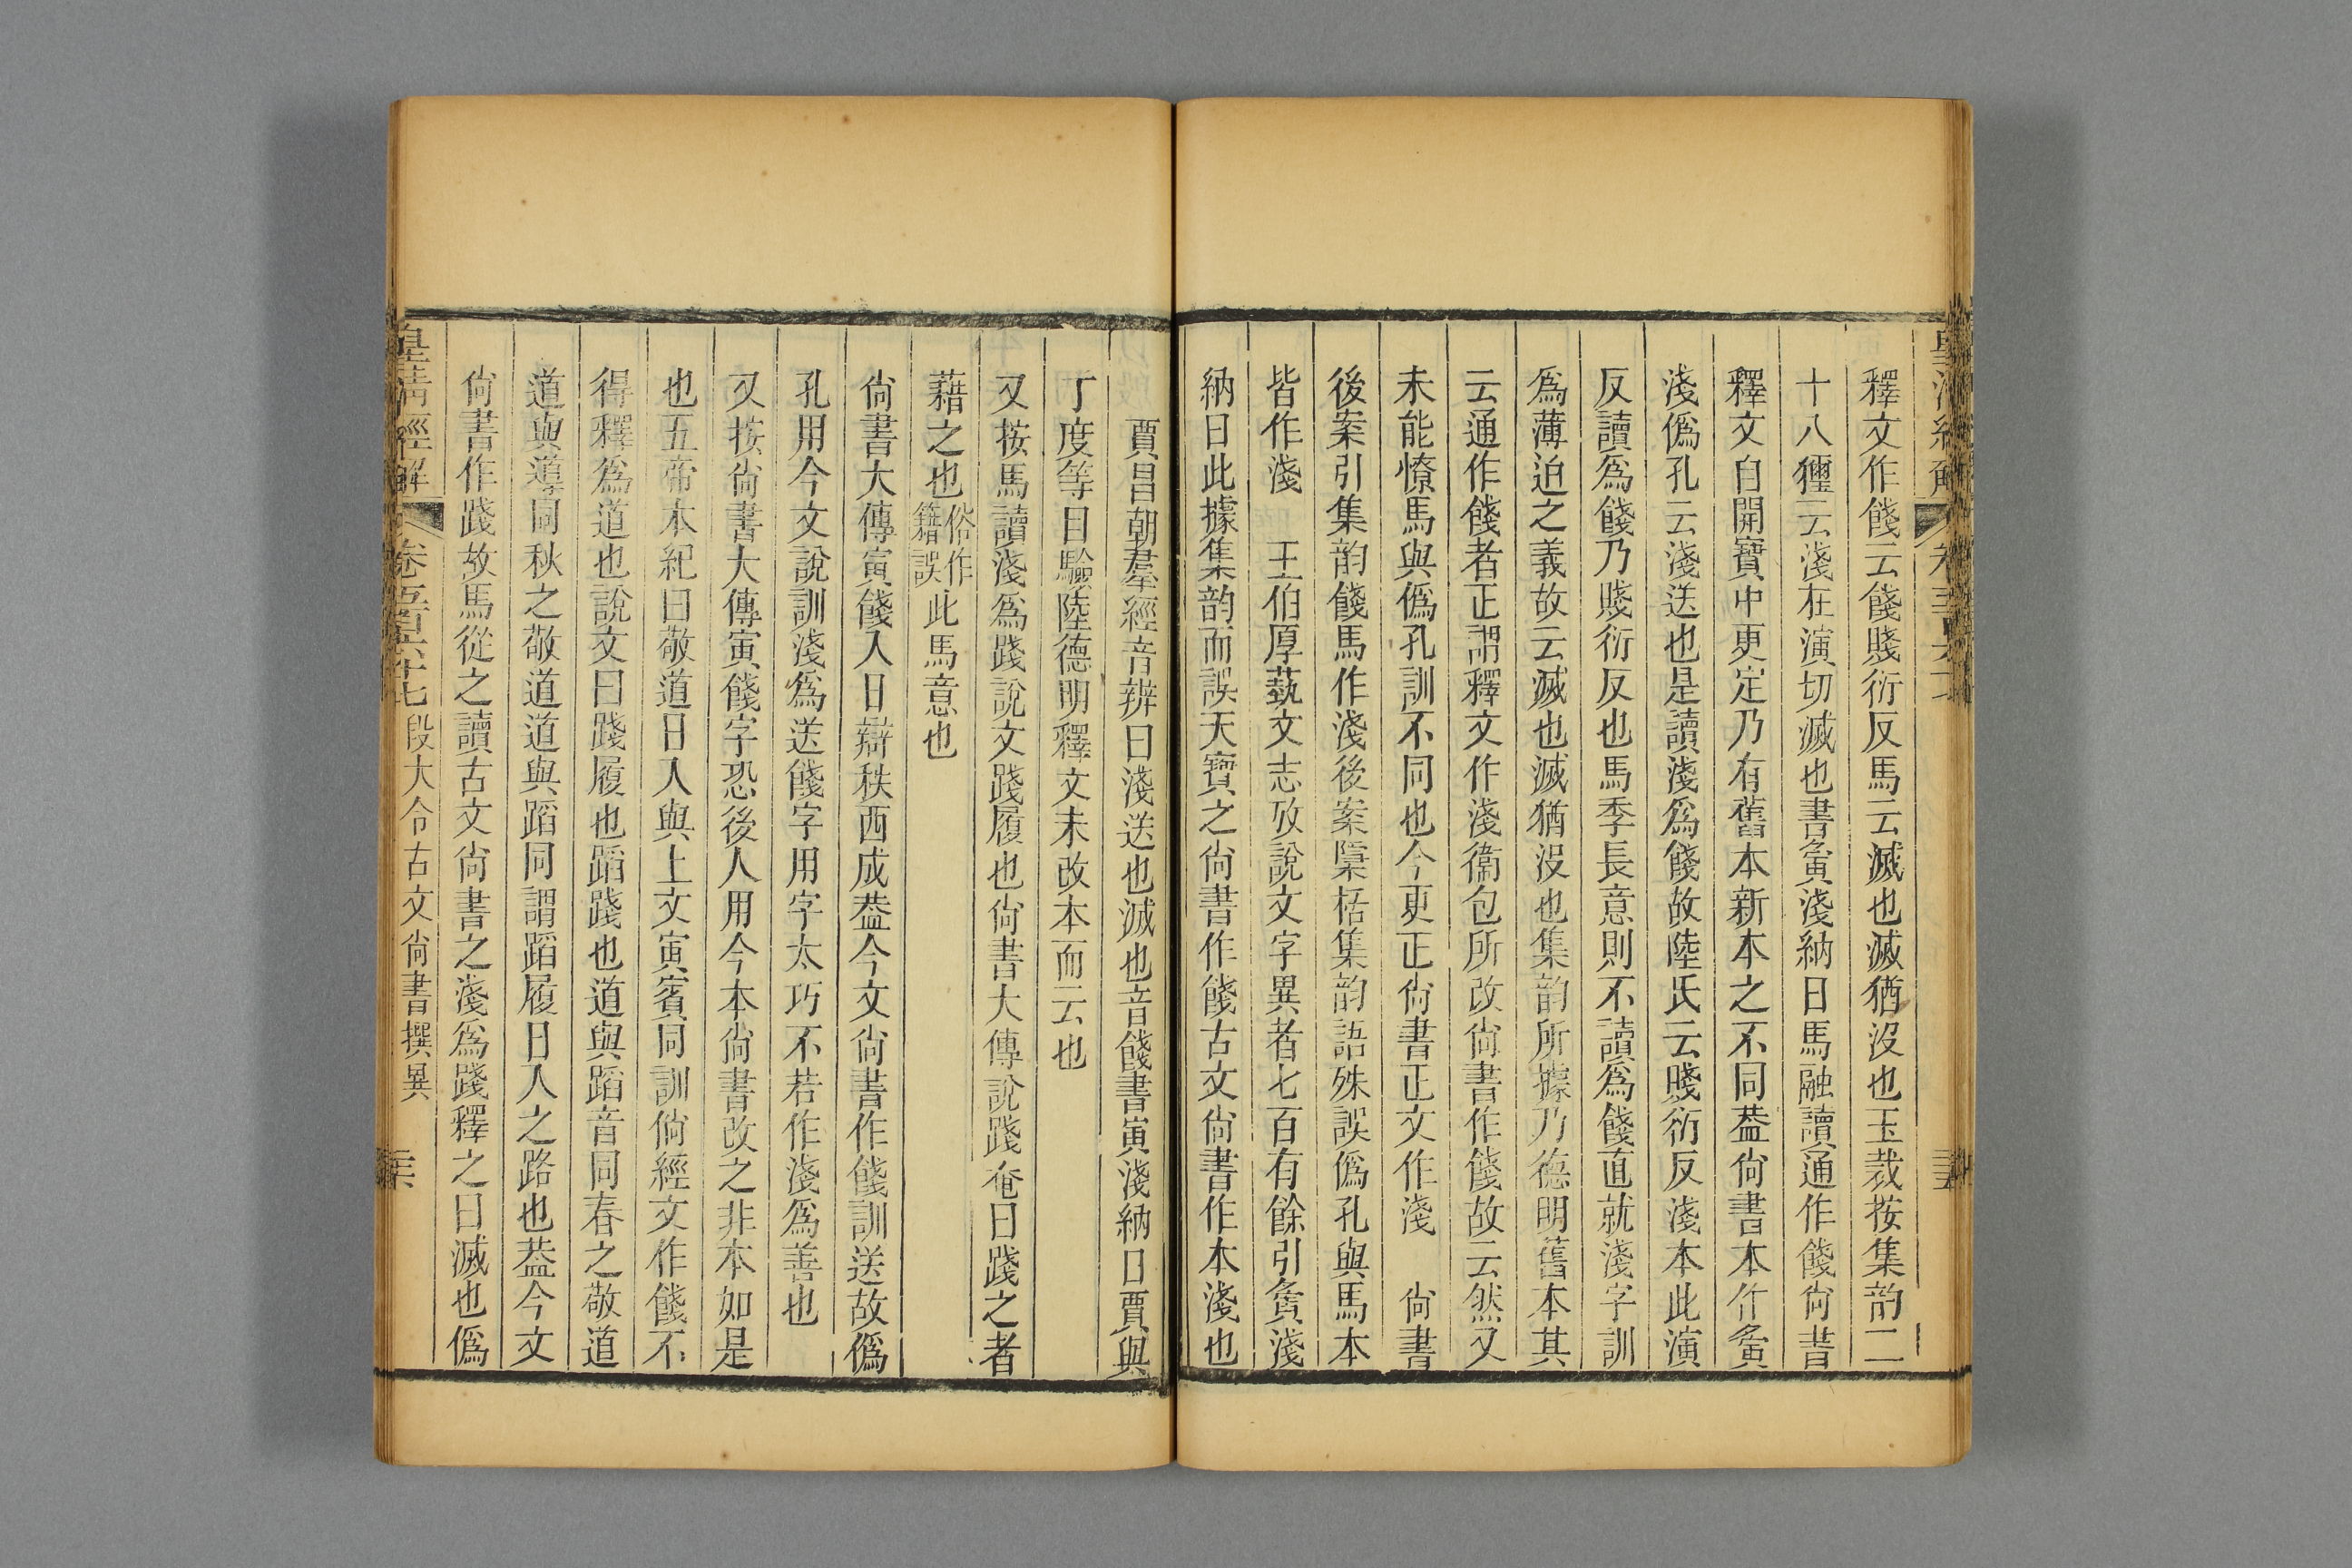 釋文作餞云餞賤衍反馬云滅也滅猶沒也玉裁按集韵二
十八獮云淺在演切滅也書夤淺納日馬融讀通作餞尙書
釋文自開寶中更定乃有舊本新本之不同葢尙書本作夤
淺僞孔云淺送也是讀淺爲餞故陸氏云賤衍反淺本此演
反讀爲餞乃賤衍反也馬季長意則不讀爲餞直就淺字訓
爲薄迫之義故云滅也滅猶沒也集韵所據乃德明舊本其
云通作餞者正謂釋文作淺衞包所改尙書作餞故云然又
未能憭馬與僞孔訓不同也今更正尙書正文作淺 尙書
後案引集韵餞馬作淺後案檃栝集韵語殊誤僞孔與馬本
皆作淺 王伯厚蓺文志攷說文字異者七百有餘引夤淺
納日此據集韵而誤天寶之尙書作餞古文尙書作本淺也
賈昌朝羣經音辨曰淺送也滅也音餞書寅淺納日賈與
丁度等日驗陸德明釋文未改本而云也
又按馬讀淺爲踐說文踐履也尙書大傳說踐奄曰踐之者
藉之也俗作籍誤此馬意也
尙書大傳寅餞入日辯秩西成葢今文尙書作餞訓送故僞
孔用今文說訓淺爲送餞字用字太巧不若作淺爲善也
又按尙書大傳寅餞字恐後人用今本尙書改之非本如是
也五帝本紀曰敬道日入與上文寅賓同訓倘經文作餞不
得釋爲道也說文曰踐履也蹈踐也道與蹈音同春之敬道
道與導同秋之敬道道與蹈同謂蹈履日入之路也葢今文
尙書作踐故馬從之讀古文尙書之淺爲踐釋之曰滅也僞
皇淸經解 卷五百六十七 段大令古文尙書撰異 三六